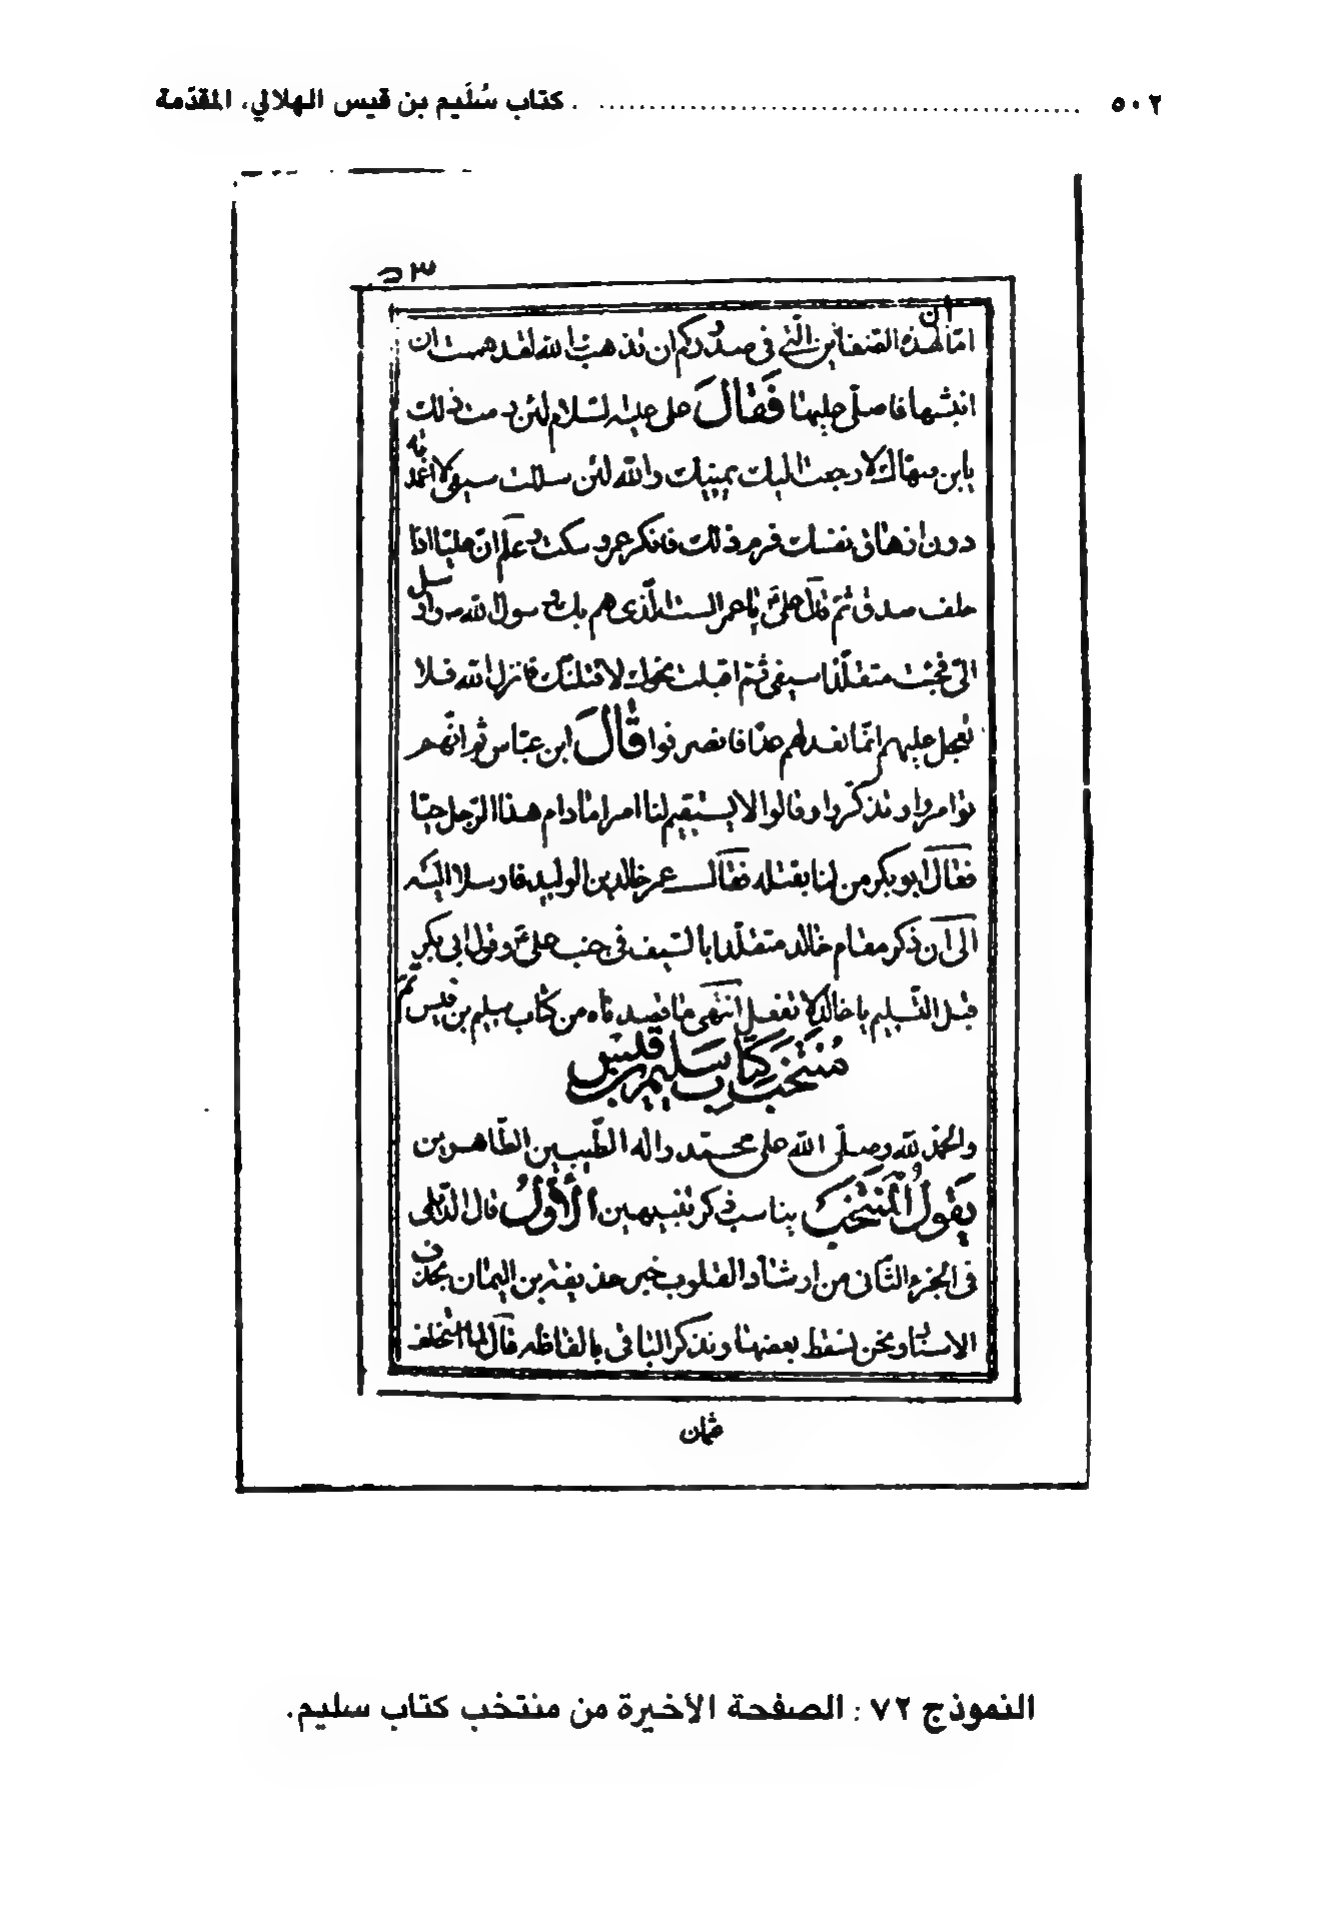 ٥٠٢ ........................................ كتاب سُلَيم بن قيس الهلالي، المقدّمة
٥٣
اما ان لهذه الضغائن التي في صدوركم ان تذهب والله لقد هممت ان
انبشها فاصلّى عليها فَقالَ على عليه السّلام لئن رمت ذلك
يابن صهاك لا رجعت اليك يمينك والله لئن سللت سيفى لا اغمدته
دون ازهاق نفسك فرم ذلك فانكسر عمر وسكت وعلم انّ عليّا اذا
حلف صدق ثمّ قال علىّ يا عمر الست الّذى هم بك رسول الله ص وارسل
الىّ فجئت متقلّدا سيفى ثم اقبلت نحوك لاقتلنّك فانزل الله فلا
تعجل عليهم انّما نعد لهم عدّا فانصرفوا قالَ ابن عبّاس ثم انّهم
توامروا وتذكّروا وقالوا لا يستقيم لنا امر ما دام هذا الرّجل حيّا
فقال ابو بكر من لنا بقتله فقال عمر خالد بن الوليد فارسلا اليه
الى ان ذكر مقام خالد متقلّدا بالسّيف فى جنب علىّ وقول ابى بكر
قبل التّسليم يا خالد لا تفعل انتهى ما قصدناه من كتاب سليم بن قيس تمّ
مُنْتَخَب كِتاب سليم بن قليس
والحمد لله وصلّى الله على محمّد واله الطّيبين الطّاهرين
يَقولُ المنتَخب يناسب ذكر تنبيهين الأوّلُ قال الدّيلمى
فى الجزء الثّانى من ارشاد القلوب خبر حذيفة بن اليمان بحذف
الاسناد ونحن نسقط بعضها ونذكر الباقى بالفاظه قال لما استخلف
عثمان
النموذج ٧٢ : الصفحة الأخيرة من منتخب كتاب سليم.